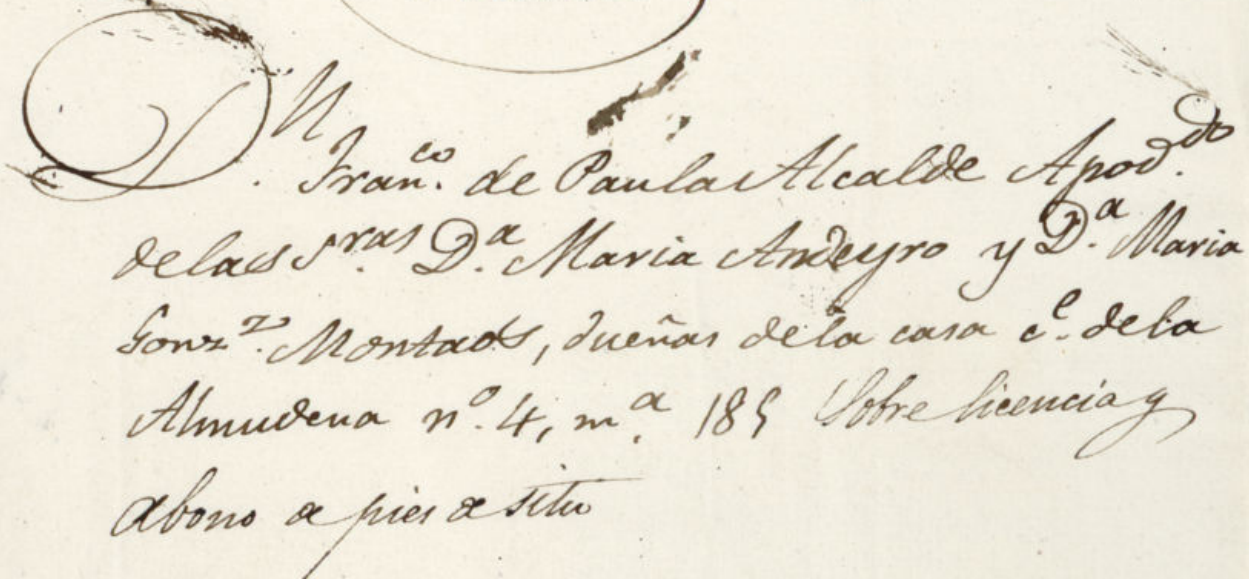 Dn
Fran.co de Paula Alcalde Apod.do
de las S.ras D.a Maria Andeyro y D.a Maria
Gonz.z Montaos, dueñas de la casa c.e de la
Almudena n.o 4, m.a 185 Sobre licencia y
abono de pies de sitio